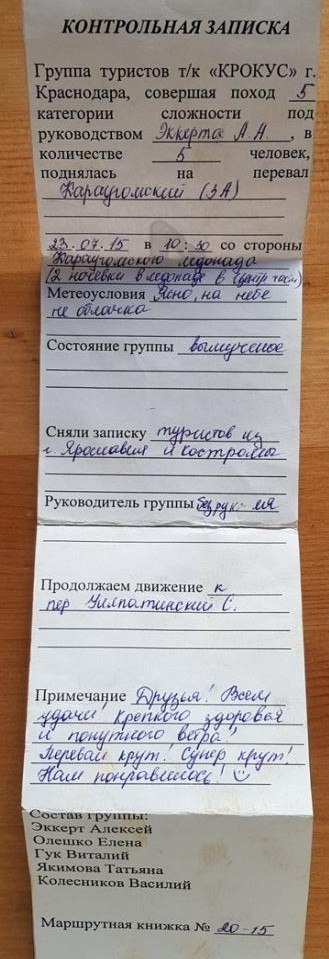 КОНТРОЛЬНАЯ ЗАПИСКА
Группа туристов т/к «КРОКУС» г.
Краснодара, совершая поход 5
категории сложности под
руководством Эккерта А.А. , в
количестве 5 человек,
поднялась на перевал
Караугомский (3А)
23.07.15 в 10:30 со стороны
Караугомского ледопада
(2 ночёвки в ледопаде в центр части)
Метеоусловия Ясно, на небе
не облачка
Состояние группы вымученое
Сняли записку туристов из
г. Ярославля и Костромы
Руководитель группы
Продолжаем движение к
пер Уилпатинский С.
Примечание Друзья! Всем
удачи! крепкого здоровья
и попутного ветра!
Перевал крут! Супер крут!
Нам понравилось!
Состав группы:
Эккерт Алексей
Олешко Елена
Гук Виталий
Якимова Татьяна
Колесников Василий
Маршрутная книжка № 20-15